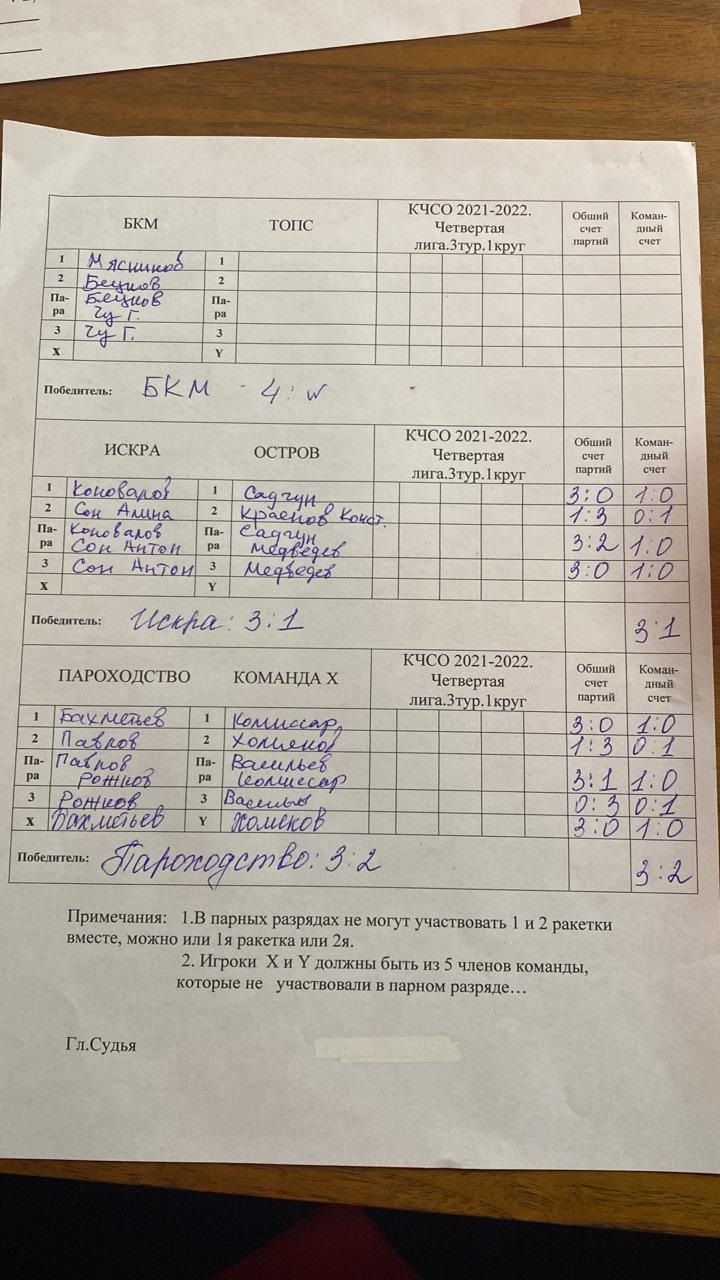 БКМ ТОПС КЧСО 2021-2022. Четвертая лига.3тур.1круг Обший счет партий Коман-дный счет
1 Мясников 1
2 Бецков 2
Па-ра Бецков Чу Г. Па-ра
3 Чу Г. 3
X Y
Победитель: БКМ 4:
ИСКРА ОСТРОВ КЧСО 2021-2022. Четвертая лига.3тур.1круг Обший счет партий Коман-дный счет
1 Коновалов 1 Садчун 3:0 1:0
2 Сон Алина 2 Краснов Конст. 1:3 0:1
Па-ра Коновалов Сон Антон Па-ра Садчун Медведев 3:2 1:0
3 Сон Антон 3 Медведев 3:0 1:0
X Y
Победитель: Искра: 3:1 3:1
ПАРОХОДСТВО КОМАНДА X КЧСО 2021-2022. Четвертая лига.3тур.1круг Обший счет партий Коман-дный счет
1 Бахметьев 1 Комиссар 3:0 1:0
2 Павлов 2 1:3 0:1
Па-ра Павлов Рожков Па-ра Васильев Комиссар 3:1 1:0
3 Рожков 3 Васильев 0:3 0:1
X Бахметьев Y Хомеков 3:0 1:0
Победитель: Пароходство: 3:2 3:2
Примечания: 1.В парных разрядах не могут участвовать 1 и 2 ракетки
вместе, можно или 1я ракетка или 2я.
2. Игроки X и Y должны быть из 5 членов команды,
которые не участвовали в парном разряде…
Гл.Судья